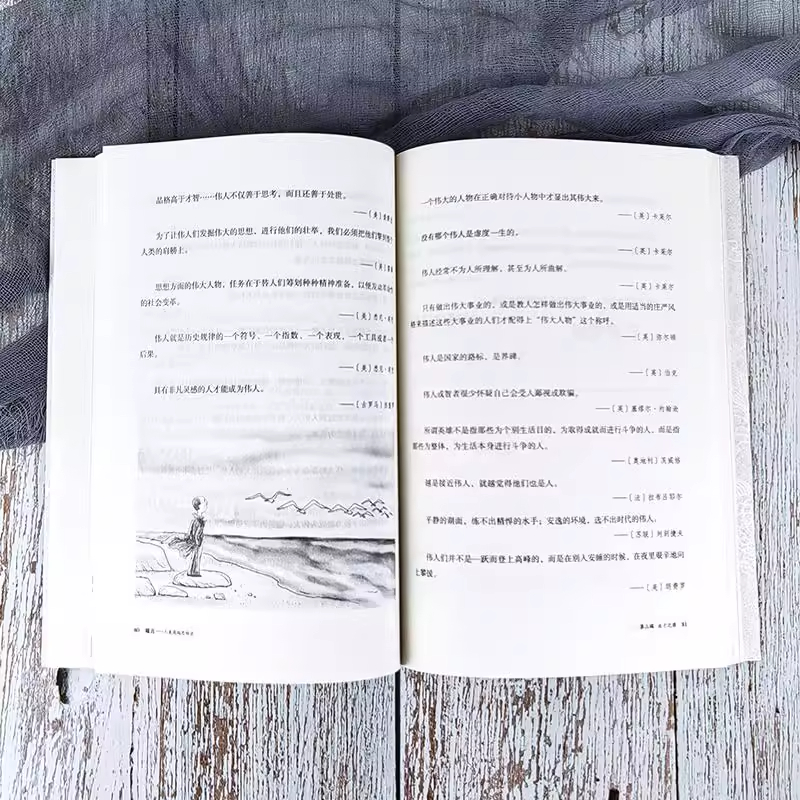 品格高于才智……伟人不仅善于思考，而且还善于处世。
——〔美〕
为了让伟人们发掘伟大的思想、进行他们的壮举，我们必须把他们
人类的肩膀上。
思想方面的伟大人物，任务在于替人们筹划种种精神准备，以便发动
的社会变革。
——〔美〕悉尼·
伟人就是历史规律的一个符号、一个指数、一个表现、一个工具或者一
后果。
——〔美〕悉尼·
具有非凡灵感的人才能成为伟人。
——〔古罗马〕
一个伟大的人物在正确对待小人物中才显出其伟大来。
——〔英〕卡莱尔
没有哪个伟人是虚度一生的。
——〔英〕卡莱尔
伟人经常不为人所理解，甚至为人所曲解。
——〔英〕卡莱尔
只有做出伟大事业的，或是教人怎样做出伟大事业的，或是用适当的庄严风
格来描述这些大事业的人们才配得上“伟大人物”这个称呼。
——〔英〕弥尔顿
伟人是国家的路标、是界碑。
——〔英〕伯克
伟人或智者很少怀疑自己会受人鄙视或欺骗。
——〔英〕塞缪尔·约翰逊
所谓英雄不是指那些为个别生活目的、为取得成就而进行斗争的人，而是指
那些为整体、为生活本身进行斗争的人。
——〔奥地利〕茨威格
越是接近伟人，就越觉得他们也是人。
——〔法〕拉布吕耶尔
平静的湖面，练不出精悍的水手；安逸的环境，造不出时代的伟人。
——〔苏联〕列别捷夫
伟人们并不是一跃而登上高峰的，而是在别人安睡的时候，在夜里艰辛地向
上攀援。
——〔美〕朗费罗